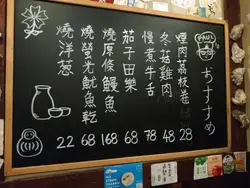 PAUL
おすすめ
煙肉荔枝卷 28
冬菇雞肉 48
慢煮牛舌 78
茄子田樂 68
燒原條鰻魚 168
燒螢光魷魚乾 68
燒洋葱 22